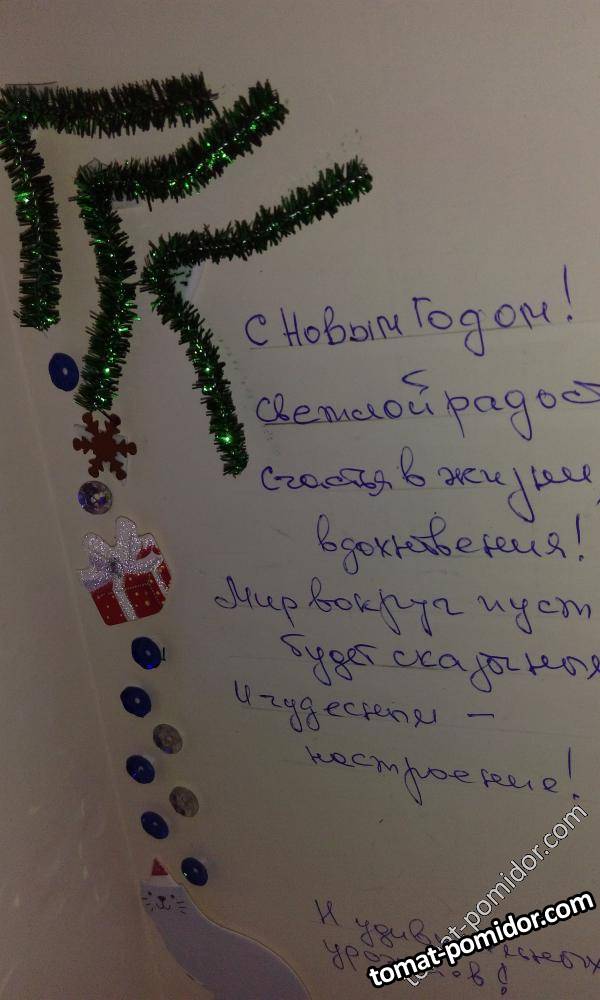 С Новым Годом!
Светлой радос
счастья в жизни,
вдохновения!
Мир вокруг пуст
будет сказочным
и чудесным —
настроение!
И
tomat-pomidor.com
tomat-pomidor.com